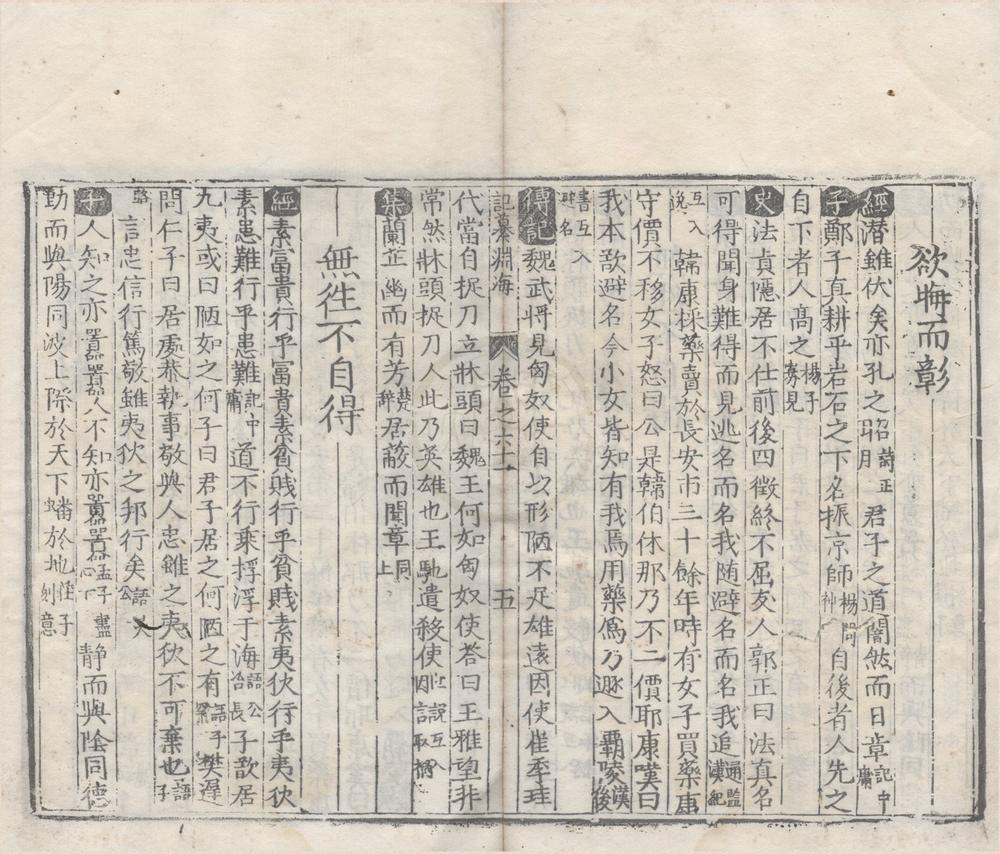 欲晦而彰
經潛雖伏矣亦孔之昭詩正月君子之道闇然而日章記中庸
子鄭子真耕乎岩石之下名振京師楊問神自後者人先之
自下者人髙之楊子寡見
史法貞隱居不仕前後四徵終不屈友人郭正曰法真名
可得聞身難得而見逃名而名我随避名而名我追通鑑漢紀
互入說韓康採藥賣於長安市三十餘年時有女子買藥康
守價不移女子怒曰公是韓伯休那乃不二價耶康嘆曰
我本欲避名今小女皆知有我焉用藥爲乃遯入覇陵漢後
書互入
傳記魏武將見匈奴使自以形陋不足雄遠因使崔季珪
記纂淵海 卷之六十一 五
代當自捉刀立牀頭曰魏王何如匈奴使荅曰王雅望非
常然牀頭捉刀人此乃英雄也王馳遣殺使世說互入
集蘭芷幽而有芳楚辭居蔽而聞章同上
無徃不自得
經素富貴行乎富貴素貧賤行乎貧賤素夷狄行乎夷狄
素患難行乎患難記中庸道不行乗桴浮于海語公冶長子欲居
九夷或曰陋如之何子曰君子居之何陋之有語子罕樊遲
問仁子曰居處恭執事敬與人忠雖之夷狄不可棄也語子
路言忠信行篤敬雖夷狄之邦行矣語
子人知之亦嚣嚣人不知亦嚣嚣孟子盡心静而與陰同德
動而與陽同波上際於天下蟠於地子刻意